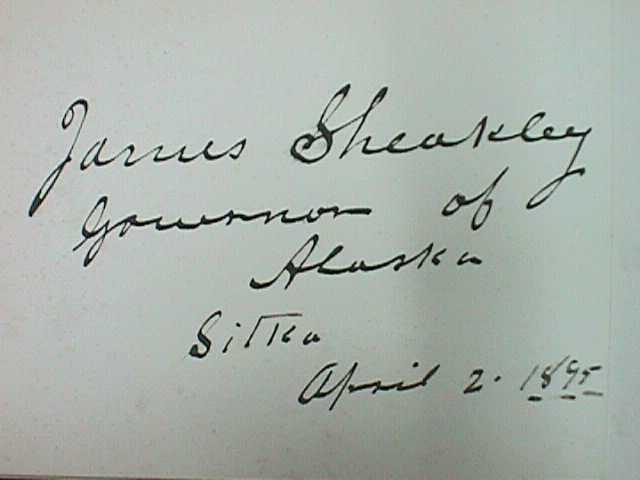 James Sheakley
Governor of
Alaska
Sitka
April 2. 1895